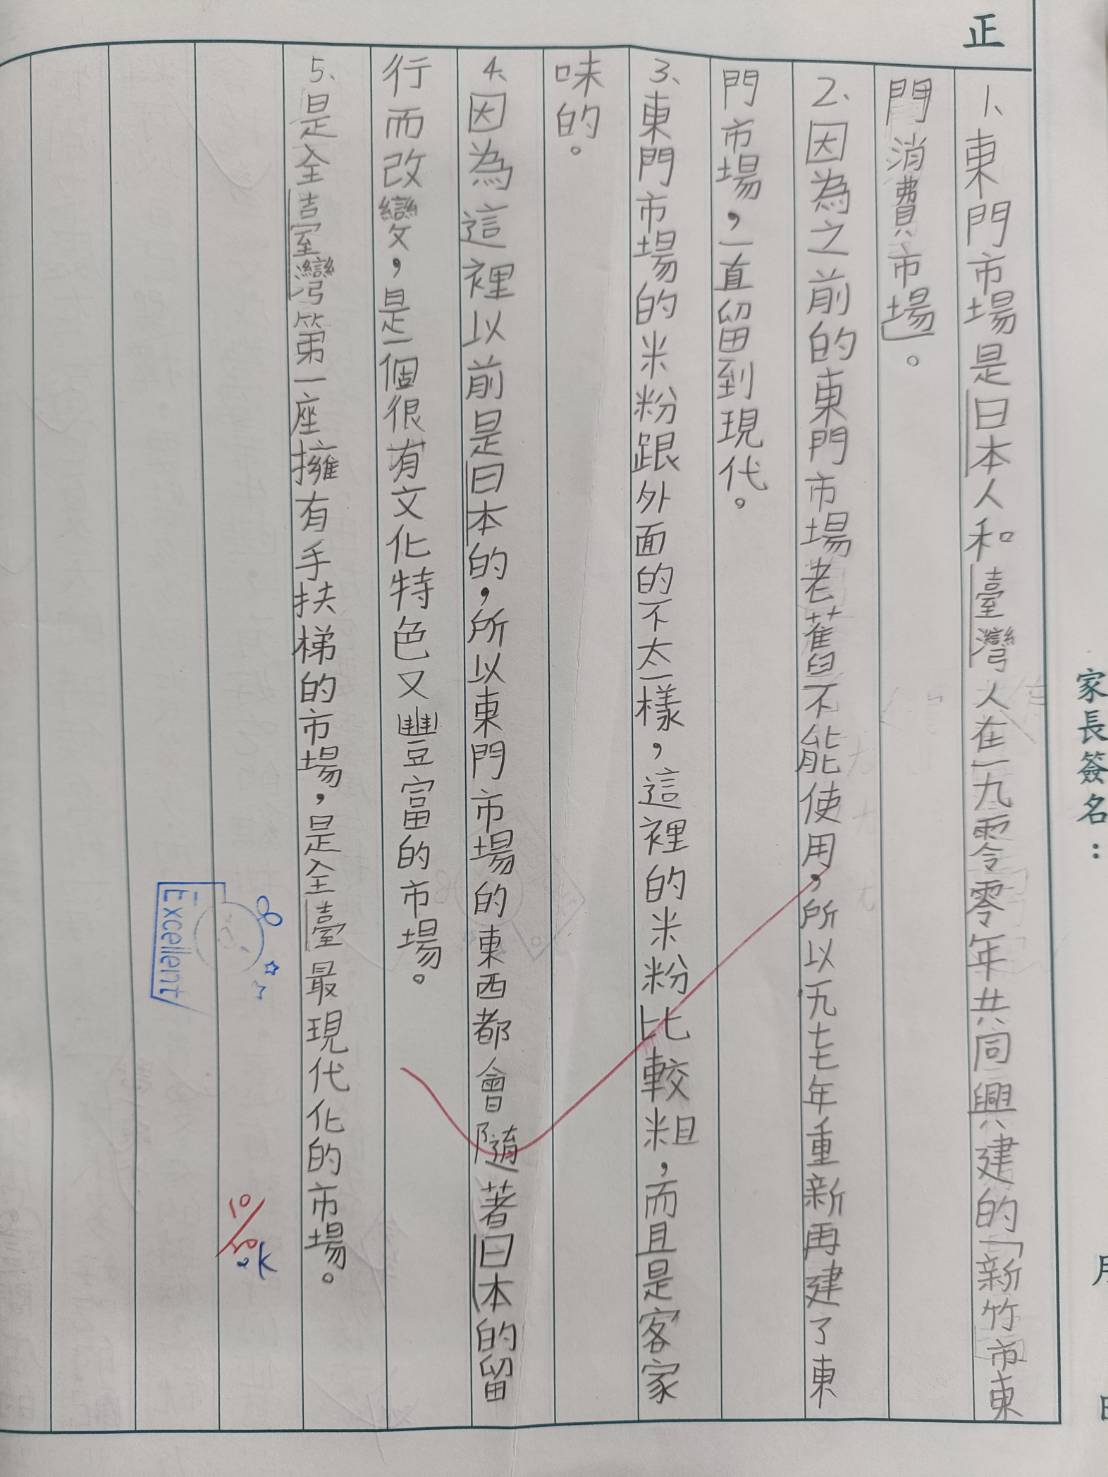 正
家長簽名：
月
1、東門市場是日本人和臺灣人在一九零零年共同興建的「新竹市東
門消費市場」。
2、因為之前的東門市場老舊不能使用，所以一九七七年重新再建了東
門市場，一直留到現代。
3、東門市場的米粉跟外面的不太一樣，這裡的米粉比較粗，而且是客家
味的。
4、因為這裡以前是日本的，所以東門市場的東西都會隨著日本的留
行而改變，是一個很有文化特色又豐富的市場。
5、是全臺灣第一座擁有手扶梯的市場，是全臺最現代化的市場。
Excellent